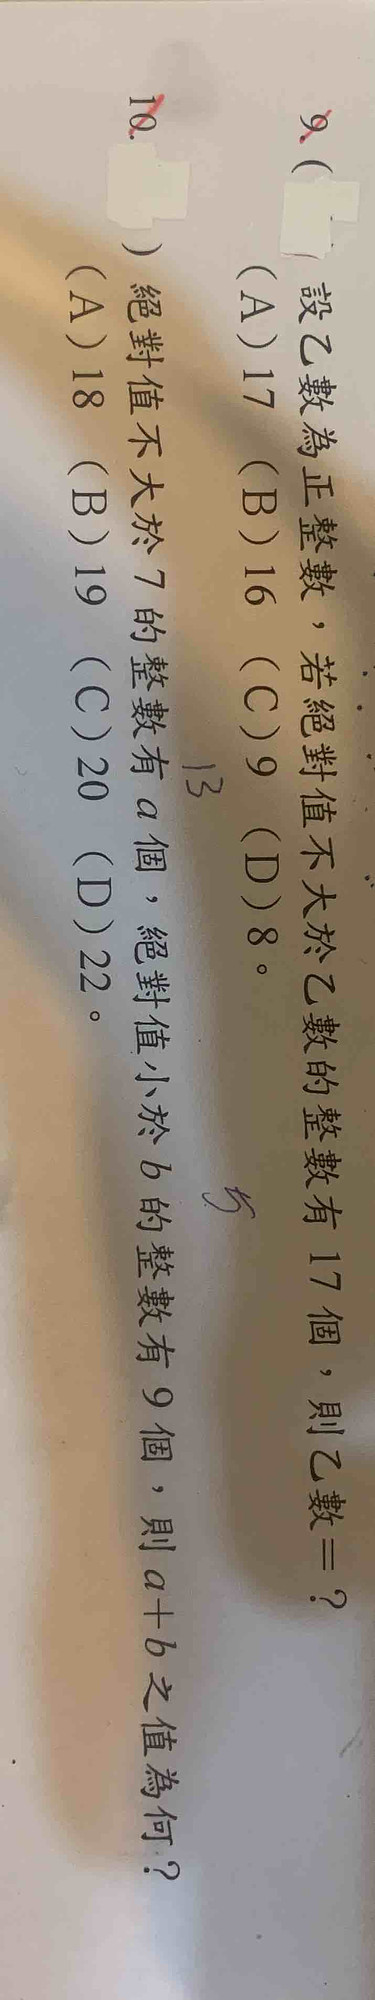 9. ( ) 設乙數為正整數，若絕對值不大於乙數的整數有17個，則乙數＝？
(A)17 (B)16 (C)9 (D)8。
13 5
10. ) 絕對值不大於7的整數有a個，絕對值小於b的整數有9個，則a＋b之值為何？
(A)18 (B)19 (C)20 (D)22。